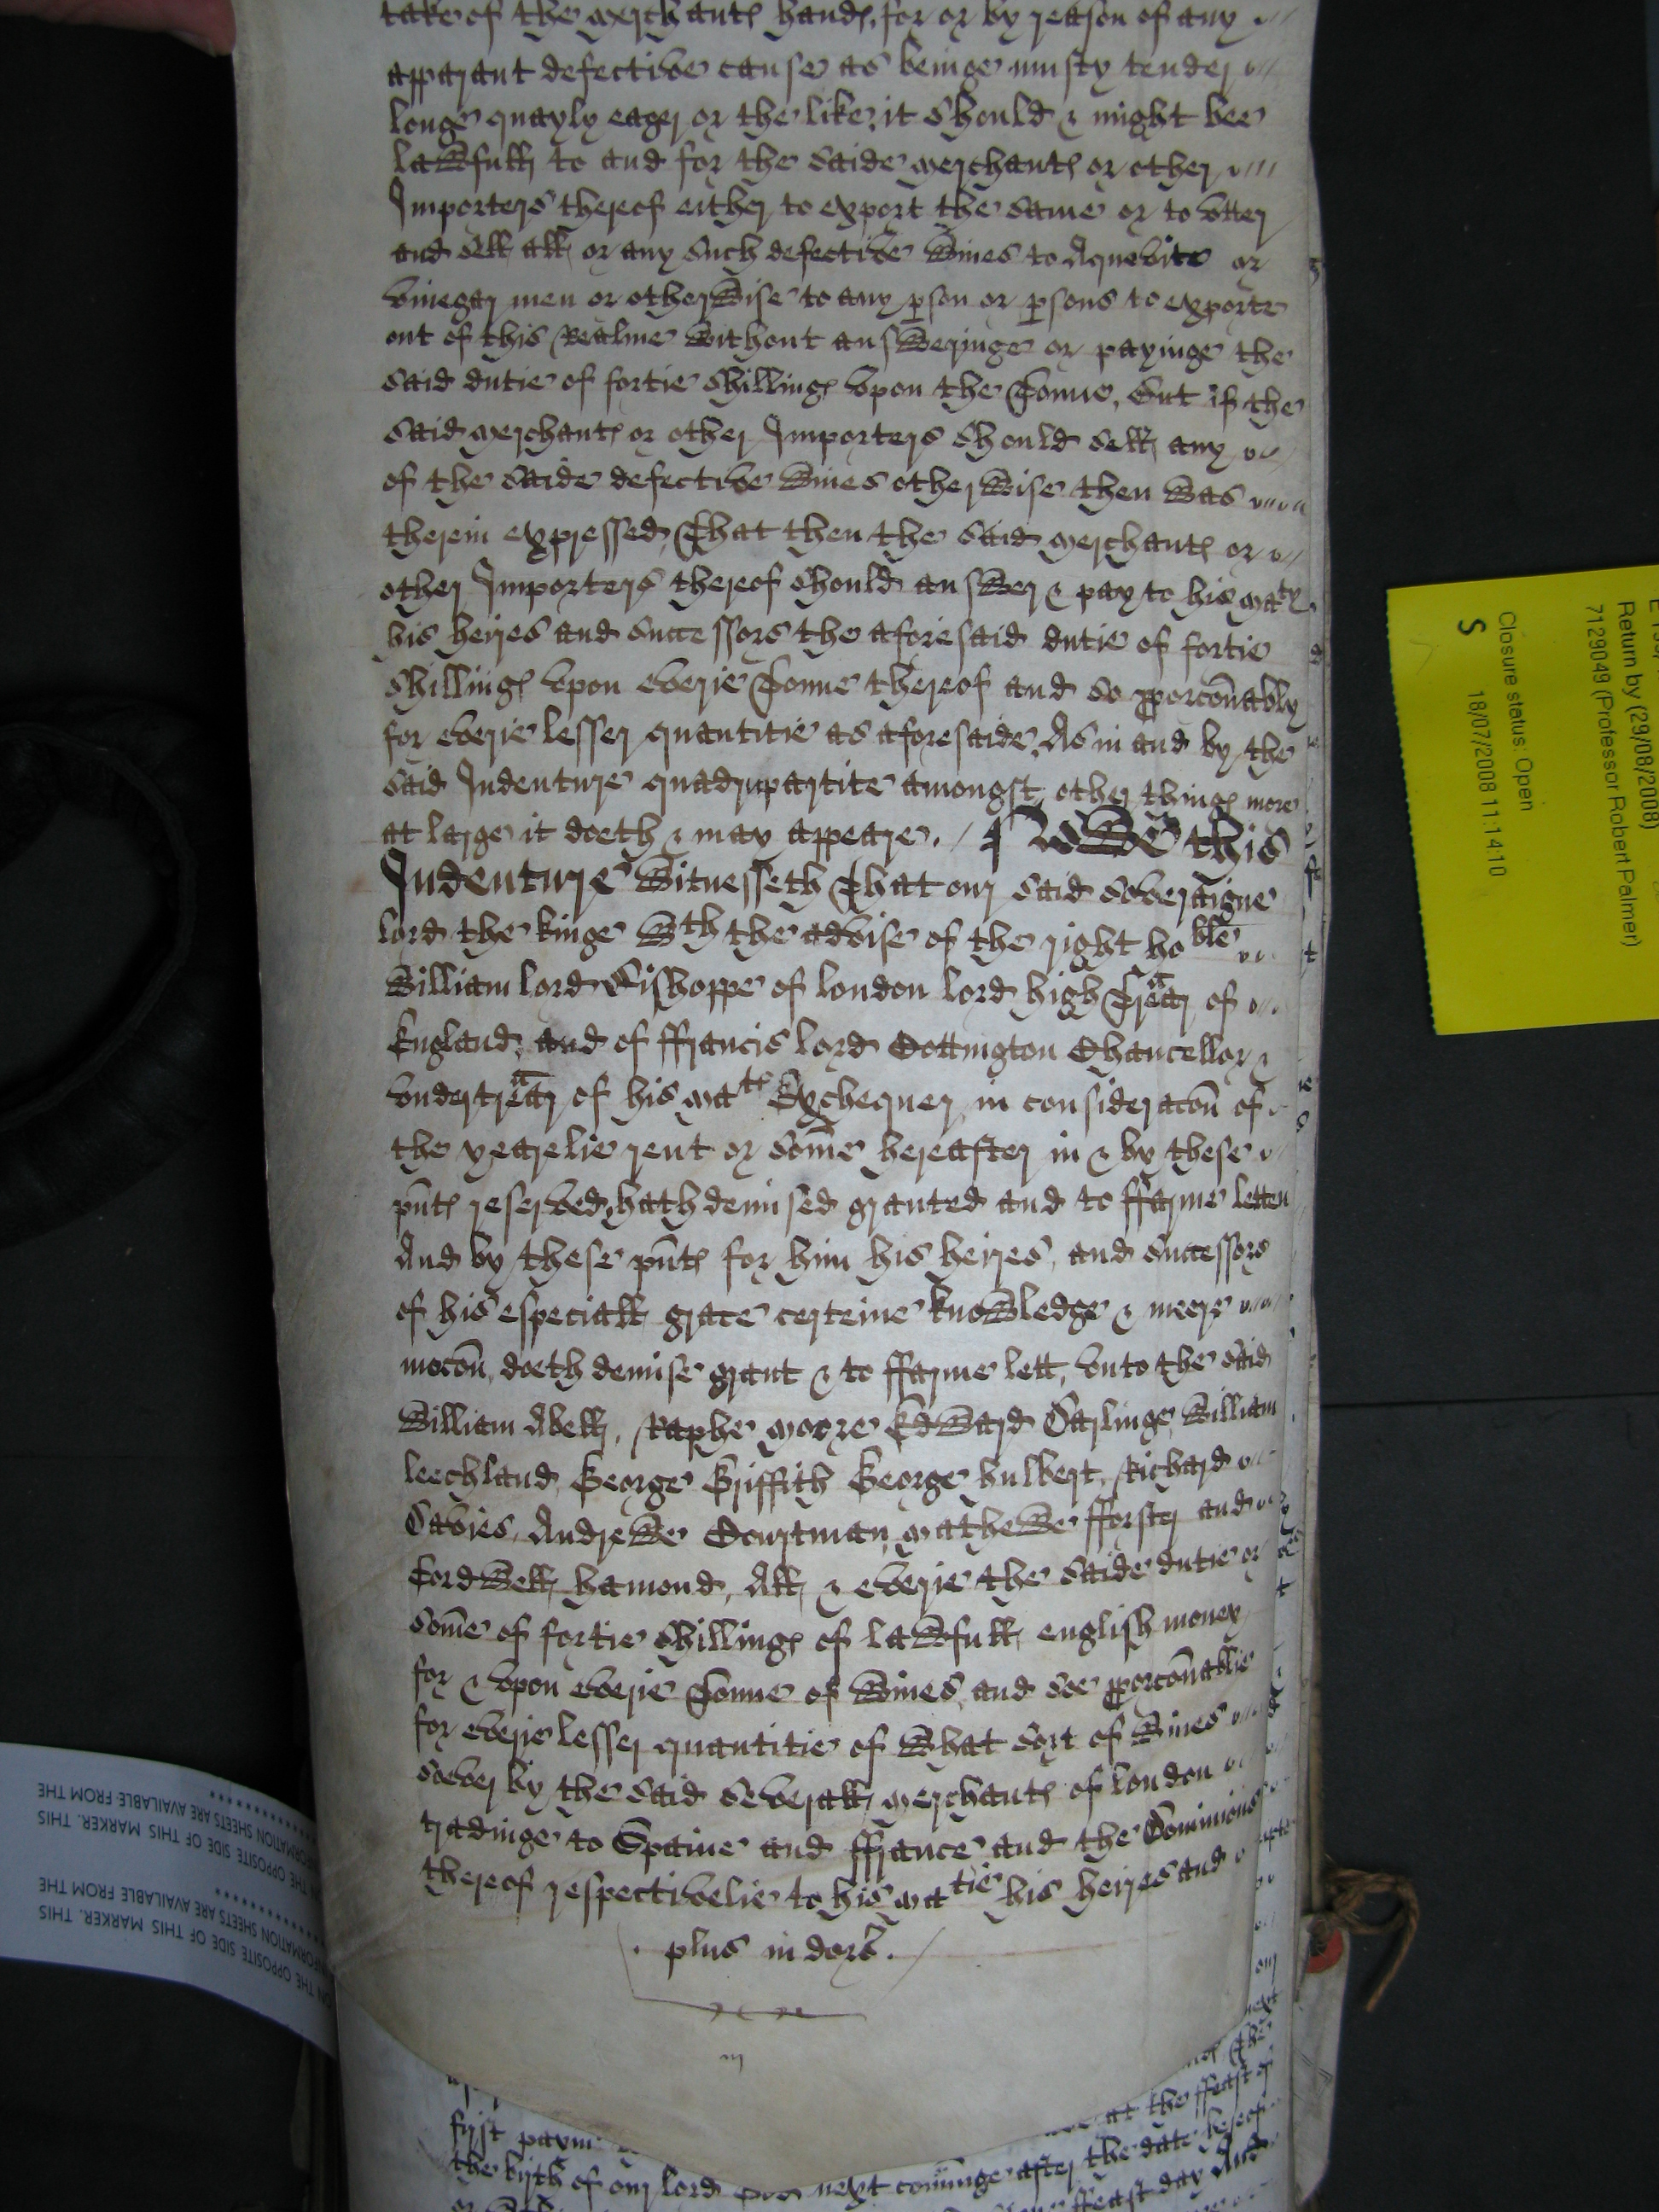 take of the merchants hands, for or by reason of any
apparant defective cause as beinge musty tender
longe quayly eager or the like, it should & might bee
lawfull to and for the saide merchants or other
Importers thereof either to export the same or to vtter
and sell all or any such defective wines to Aquevite or
vinegar men or otherwise to any pson or psons to exporte
out of this Realme without answeringe or payinge the
said dutie of fortie shillings vpon the Tonne, But if the
said merchants or other Importers should sell any
of the saide defective wines otherwise then was
therein expressed, That then the said merchants or
other Importers thereof should answer & pay to his Maty
his heires and successors the aforesaid dutie of fortie
shillings vpon everie Tonne thereof and so pporcōnably
for everie lesser quantitie as aforesaide, As in and by the
said Indenture quadrupartite amongst other things more
at large it doeth & may appeare. / Nowe this
Indenture Witnesseth That our said Soveraigne
lord the kinge wth the advise of the right hoble
William lord Bishoppe of london lord high Trēar of
England, and of ffrancis lord Cottington Chancellor &
vndertrēar of his Mats Exchequer, in consideracōn of
the yearelie rent or som̄e hereafter in & by these
pn̄ts reserved, hath demised granted and to ffarme letten
And by these pn̄ts for him his heires, and successors
of his especiall grace certeine knowledge & meere
mocōn, doeth demise grant & to ffarme lett, vnto the said
William Abell, Raphe Moore Edward Darlinge, William
leechland, George Griffith George hulbert, Richard
Davies, Andrewe Courtman, Mathewe fforster and
Cordwell hamond, All & everie the saide dutie or
som̄e of fortie shillings of lawfull english money
for & vpon everie Tonne of Wines, and soe pporcōnablie
for everie lesser quantitie of what sort of Wines
soever by the said severall merchants of london
tradinge to Spaine and ffrance and the Dominions
thereof respectivelie to his Matie his heires and
. plus in dors.
at the ffeast of
first paym
the birth of our lord god next com̄inge after the date hereof
ffeast day And
Return by (29/08/2008)
7129049 (Professor Robert Palmer)
Closure status: Open
S
18/07/2008 11:14:10
OPPOSITE SIDE OF THIS MARKER. THIS
INFORMATION SHEETS ARE AVAILABLE FROM THE
ON THE OPPOSITE SIDE OF THIS MARKER. THIS
INFORMATION SHEETS ARE AVAILABLE FROM THE